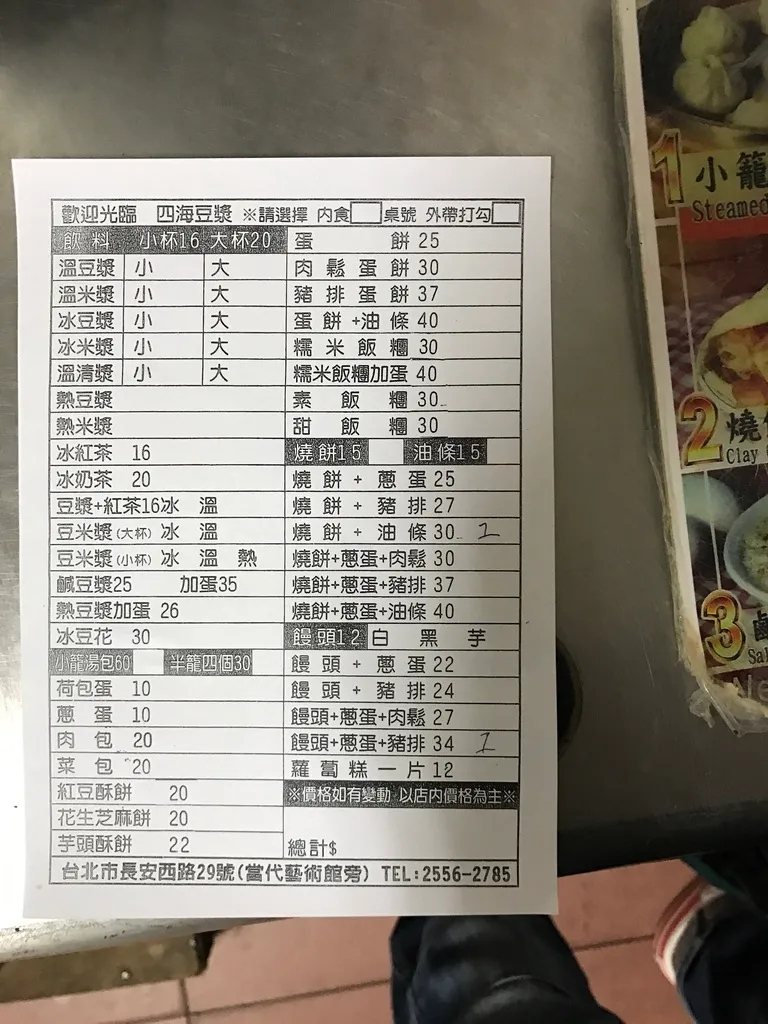 歡迎光臨 四海豆漿 ※請選擇 內食 桌號 外帶打勾
飲料 小杯16 大杯20
溫豆漿 小 大
溫米漿 小 大
冰豆漿 小 大
冰米漿 小 大
溫清漿 小 大
熱豆漿
熱米漿
冰紅茶 16
冰奶茶 20
豆漿+紅茶16冰 溫
豆米漿(大杯) 冰 溫
豆米漿(小杯) 冰 溫 熱
鹹豆漿25 加蛋35
熱豆漿加蛋 26
冰豆花 30
小籠湯包60 半籠四個30
荷包蛋 10
蔥蛋 10
肉包 20
菜包 20
紅豆酥餅 20
花生芝麻餅 20
芋頭酥餅 22
蛋餅 25
肉鬆蛋餅 30
豬排蛋餅 37
蛋餅+油條 40
糯米飯糰 30
糯米飯糰加蛋 40
素飯糰 30
甜飯糰 30
燒餅15 油條15
燒餅+蔥蛋 25
燒餅+豬排 27
燒餅+油條 30 1
燒餅+蔥蛋+肉鬆 30
燒餅+蔥蛋+豬排 37
燒餅+蔥蛋+油條 40
饅頭12 白 黑 芋
饅頭+蔥蛋 22
饅頭+豬排 24
饅頭+蔥蛋+肉鬆 27
饅頭+蔥蛋+豬排 34 1
蘿蔔糕一片 12
※價格如有變動 以店內價格為主※
總計$
台北市長安西路29號(當代藝術館旁) TEL:2556-2785
1 小籠
Steamed
2 燒
Clay
3